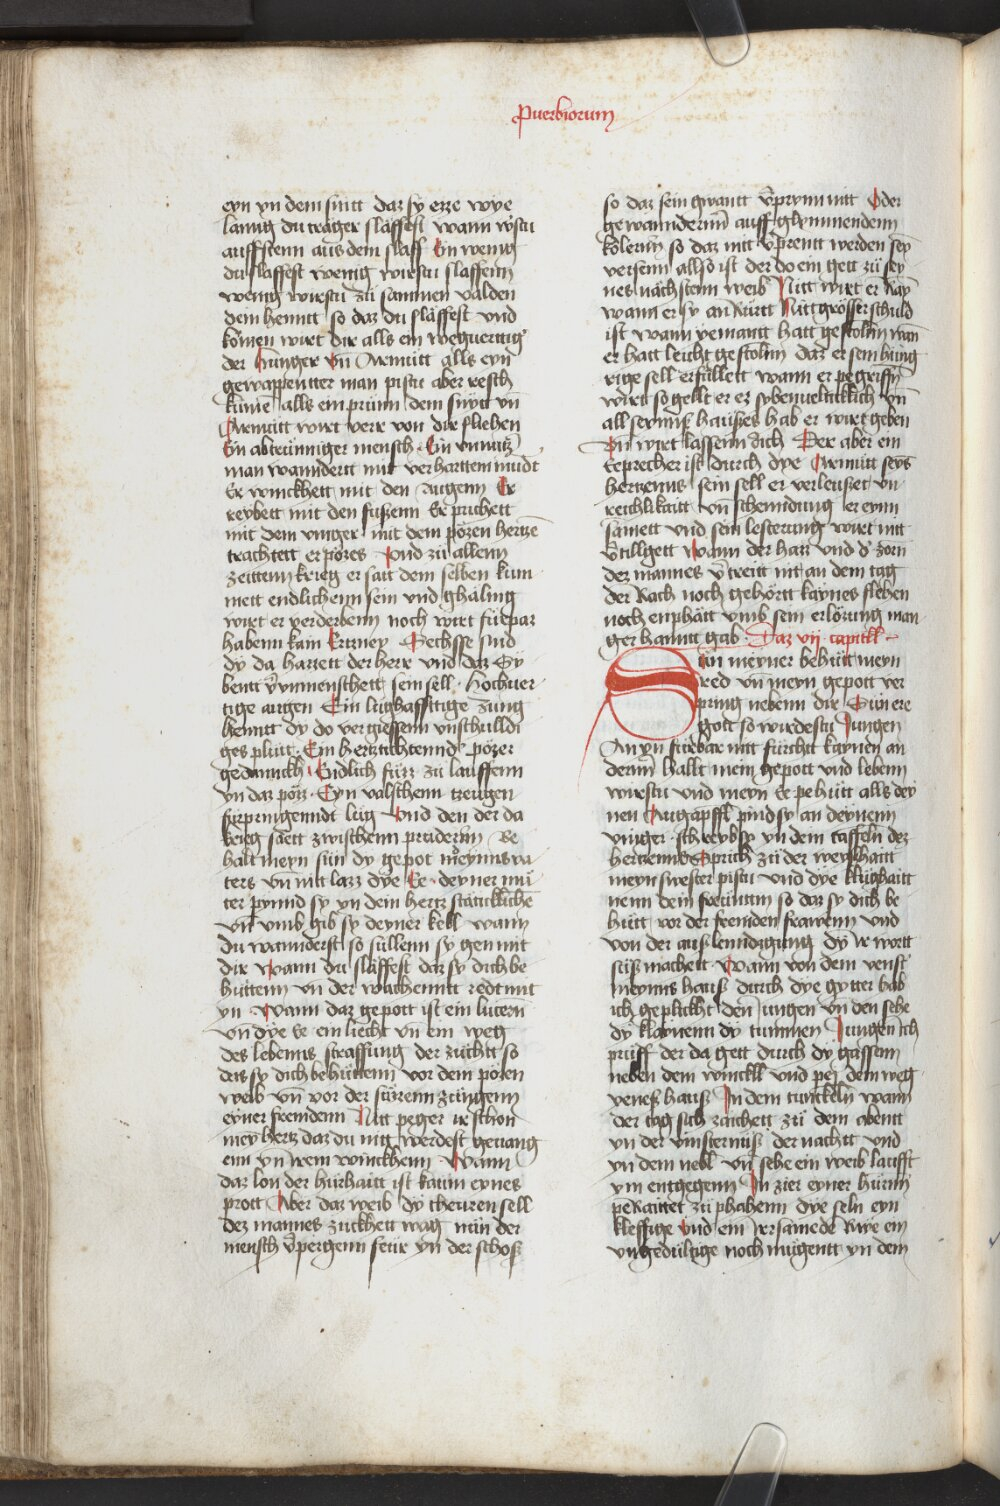 Puerbiorum
eyn yn dem snitt daz sy ezze wye
lanng du trager släffest wann wirstu
auffstenn aus dem slaff Ein wenig
du slaffest wenig wirstu slaffenn
wenig wirstu zu sammen valden
dein hennt so daz du släffest vnd
komen wirt dir alls ein weguertig
der hunger vn Armutt alls eyn
gewappenter man pistu aber resch
kume alls ein prunn dein snytt vn
Armutt wirt verr von dir fliehen
Ein abtrunniger mensch Ein vnnutz
man wanndertt mit verharttem mudt
Er winckhett mit den augenn Er
reybett mit den fussenn Er prichett
mit dem vinger mit dem pözen hertze
trachtett er pözes vnd zu allenn
zeittenn krieg er satt dem selben kum
mett endlichenn sein vnd ghaling
wirt er verderbenn noch wirt furpaz
habenn kain Ertzney Sechsse sind
dy da hazzett der herr vnd daz Sy
bentt vnmenschett sein sell Hochuer
tige augen Ein lughafftige zung
hennt dy do vergiessenn vnschulldi
ges plutt Ein hertz tichtennd pözer
gedannckh Endlich fuzz zu lauffenn
yn daz pözz Eyn valschenn tzeugen
furpringenndt lug vnd den der da
krieg saett zwischenn pruderin Be
halt meyn sun dy gepot meynns va
ters vn nitt lazz dye Ee deyner mu
ter pynnd sy yn dein hertz stattickliche
vn vmb gib sy deyner kell wann
du wannderst so sullenn sy gen mit
dir wann du släffest daz sy dich be
huttenn vn der wachennt redt mit
yn Wann daz gepott ist ein lucern
vn dye Ee ein liecht vn ein weg
des lebenns straffung der zucht so
das sy dich behuttenn vor dem pozen
weib vn vor der süzenn zungenn
eyner fremdenn Nitt peger ir schon
mey hertz daz du nitt werdest geuang
enn yn irem winckhenn Wann
daz lon der hurhaitt ist kaum eynes
prott Aber daz weib dy theuren sell
dez mannes zuckhett mag nun der
mensch vpergenn feur yn der schoss
so daz sein gwantt vprynn nitt Oder
gewanndernn auff glymmendenn
kolernn so daz nit vprentt werden sey
versenn allso ist der do ein gett zu sey
nes nächstenn weib Nitt wirt er Ray
wann er sy anRurtt Nitt grösser schuld
ist wann yemantt hatt gestolnn wan
er hatt leicht gestolnn daz er sein hung
rige sell erfullett wann er pegriffn
wirt so gellt er ez sybenueltticklich vn
all seynns hausses hab er wirt geben
vn wirt lassenn dich Der aber ein
Eeprecher ist durch dye Armutt seyns
hertzenns sein sell er verleuszet vn
reichlikaitt vn schenndung er eynn
samett vnd sein lesterung wirt nit
vtillgett wann der haz vnd d zorn
dez mannes vtreitt nit an dem tag
der Rach noch gehortt kaynes flehen
noch enphätt vmb sein erlözung man
ger hannt gab Daz vij capitll
Sun meyner behutt meyn
red vn meyn gepott ver
pring nebenn dir Sun ere
gott so wirdestu Jungen
An yn furbaz nitt furcht kaynen an
dernn hallt mein gepott vnd lebenn
wirstu vnd meyn Ee pehutt alls dey
nen Augapffl pind sy an deynenn
vinger schreyb sy yn dem taffeln dez
hertzenns Sprich zu der weyshaitt
meyn swester pistu vnd dye klughaitt
nenn dein freuntin so daz sy dich be
hütt vor der fremden frawenn vnd
von der auslenndigung dy ir wortt
süs machett Wann von dem venst
meynns haus durch dye gytter hab
ich geplickht den Jungen vn den sehe
dy klaynenn dy tummen Jungen ich
pruff der da gett durch dy gassenn
neben dem winckll vnd pej dem weg
yenes haus In dem tunckeln wann
der tag sich zaichett zu dem abent
yn der vinsternuss der nacht vnd
yn dem nebl vn sehe ein weib laufft
ym entgegenn In zier eyner hurnn
peRaittet zu phahenn dye seln eyn
kleffige vnd ein irrsamede Rwe ein
vngedultige noch mugentt yn dem